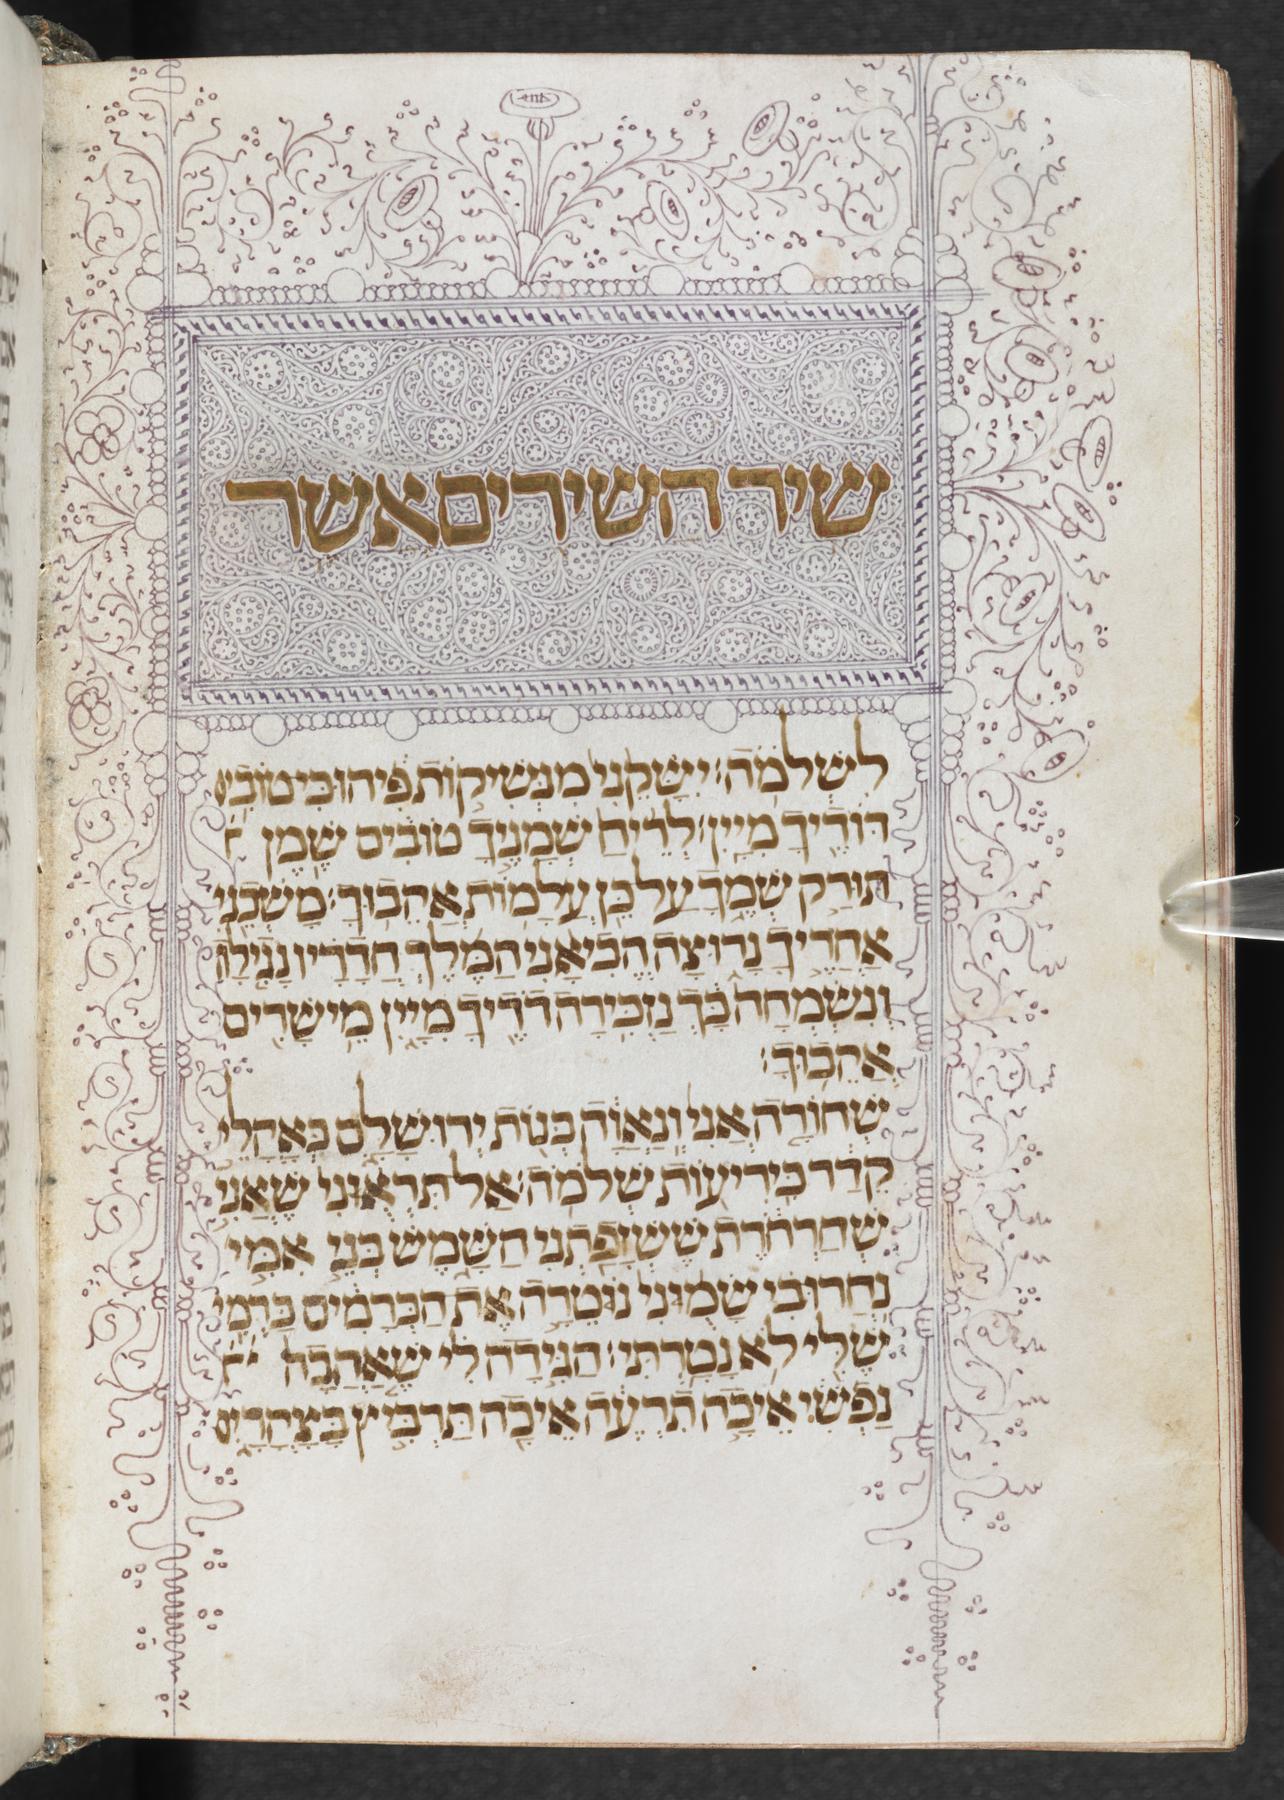 שיר השירים אשר
לִשְׁלֹמֹה׃ יִשָּׁקֵנִי מִנְּשִׁיקוֹת פִּיהוּ כִּי טוֹבִים
דּוֹדֶיךָ מִיָּיִן׃ לְרֵיחַ שְׁמָנֶיךָ טוֹבִים שֶׁמֶן
תּוּרַק שְׁמֶךָ עַל כֵּן עֲלָמוֹת אֲהֵבוּךָ׃ מָשְׁכֵנִי
אַחֲרֶיךָ נָרוּצָה הֱבִיאַנִי הַמֶּלֶךְ חֲדָרָיו נָגִילָה
וְנִשְׂמְחָה בָּךְ נַזְכִּירָה דֹדֶיךָ מִיַּיִן מֵישָׁרִים
אֲהֵבוּךָ׃
שְׁחוֹרָה אֲנִי וְנָאוָה בְּנוֹת יְרוּשָׁלָ‍ִם כְּאָהֳלֵי
קֵדָר כִּירִיעוֹת שְׁלֹמֹה׃ אַל תִּרְאוּנִי שֶׁאֲנִי
שְׁחַרְחֹרֶת שֶׁשְּׁזָפַתְנִי הַשָּׁמֶשׁ בְּנֵי אִמִּי
נִחֲרוּ בִי שָׂמוּנִי נוֹטֵרָה אֶת הַכְּרָמִים כַּרְמִי
שֶׁלִּי לֹא נָטָרְתִּי׃ הַגִּידָה לִּי שֶׁאָהֲבָה
נַפְשִׁי אֵיכָה תִרְעֶה אֵיכָה תַּרְבִּיץ בַּצָּהֳרָיִם